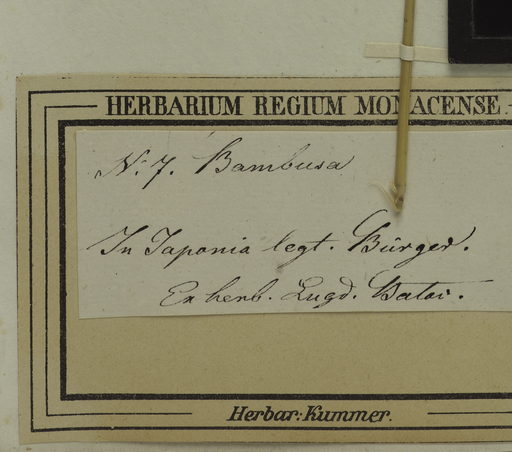 HERBARIUM REGIUM MONACENSE.
N. 7. Bambusa
In Japonia legt. Bürger.
Ex herb. Lugd. Batav.
Herbar: Kummer.